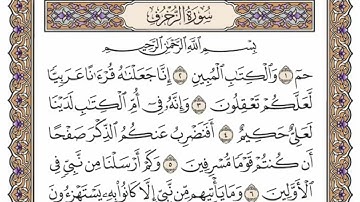 سُورَةُ الزُّخْرُفِ
بِسْمِ اللَّهِ الرَّحْمَٰنِ الرَّحِيمِ
حمٓ ١ وَٱلْكِتَٰبِ ٱلْمُبِينِ ٢ إِنَّا جَعَلْنَٰهُ قُرْءَٰنًا عَرَبِيًّا
لَّعَلَّكُمْ تَعْقِلُونَ ٣ وَإِنَّهُۥ فِىٓ أُمِّ ٱلْكِتَٰبِ لَدَيْنَا
لَعَلِىٌّ حَكِيمٌ ٤ أَفَنَضْرِبُ عَنكُمُ ٱلذِّكْرَ صَفْحًا
أَن كُنتُمْ قَوْمًا مُّسْرِفِينَ ٥ وَكَمْ أَرْسَلْنَا مِن نَّبِىٍّ فِى
ٱلْأَوَّلِينَ ٦ وَمَا يَأْتِيهِم مِّن نَّبِىٍّ إِلَّا كَانُوا۟ بِهِۦ يَسْتَهْزِءُونَ